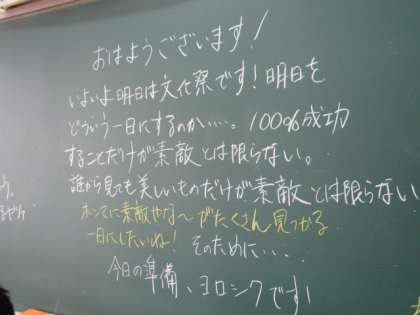 おはようございます!
いよいよ明日は文化祭です!明日を
どういう一日にするのか・・・。100%成功
することだけが素敵とは限らない。
誰から見ても美しいものだけが素敵とは限らない
ホンマに素敵やな〜がたくさん見つかる
一日にしたいね! そのために・・・・
今日の準備、ヨロシクです!